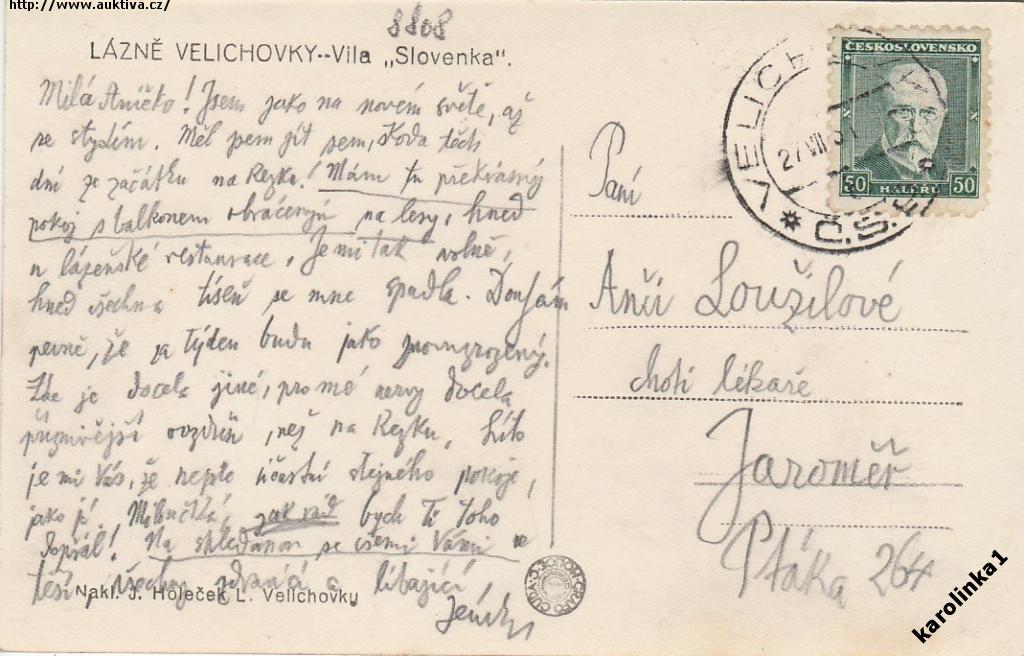 http://www.auktiva.cz/
8808
LÁZNĚ VELICHOVKY--Vila „Slovenka“.
Milá Aničko! Jsem jako na novém světě, až
se stydím. Měl jsem jít sem, těch
dní ze začátku na Rezku! Mám tu překrásný
pokoj s balkonem obráceným na lesy, hned
u lázeňské restaurace. Je mi tak volně,
hned všechna tíseň se mne spadla. Doufám
pevně, že za týden budu jako znovuzrozený.
Zde je docela jiné, pro mé nervy docela
příznivější ovzduší, než na Rezku. Líto
je mi Vás, že nejste účastni stejného pokoje,
jako já. Miluško, jak rád bych Ti toho
dopřál! Na shledanou se všemi Vámi se
těší, všechny zdravící a líbající,
Nakl. J. Holeček L. Velichovky
VELICHOVKY
27 VII 31
Č.S.
ČESKOSLOVENSKO
50 HALÉŘŮ 50
Paní
Anči Loužilové
choti lékaře
Jaroměř
Ptáka 264
karolinka1